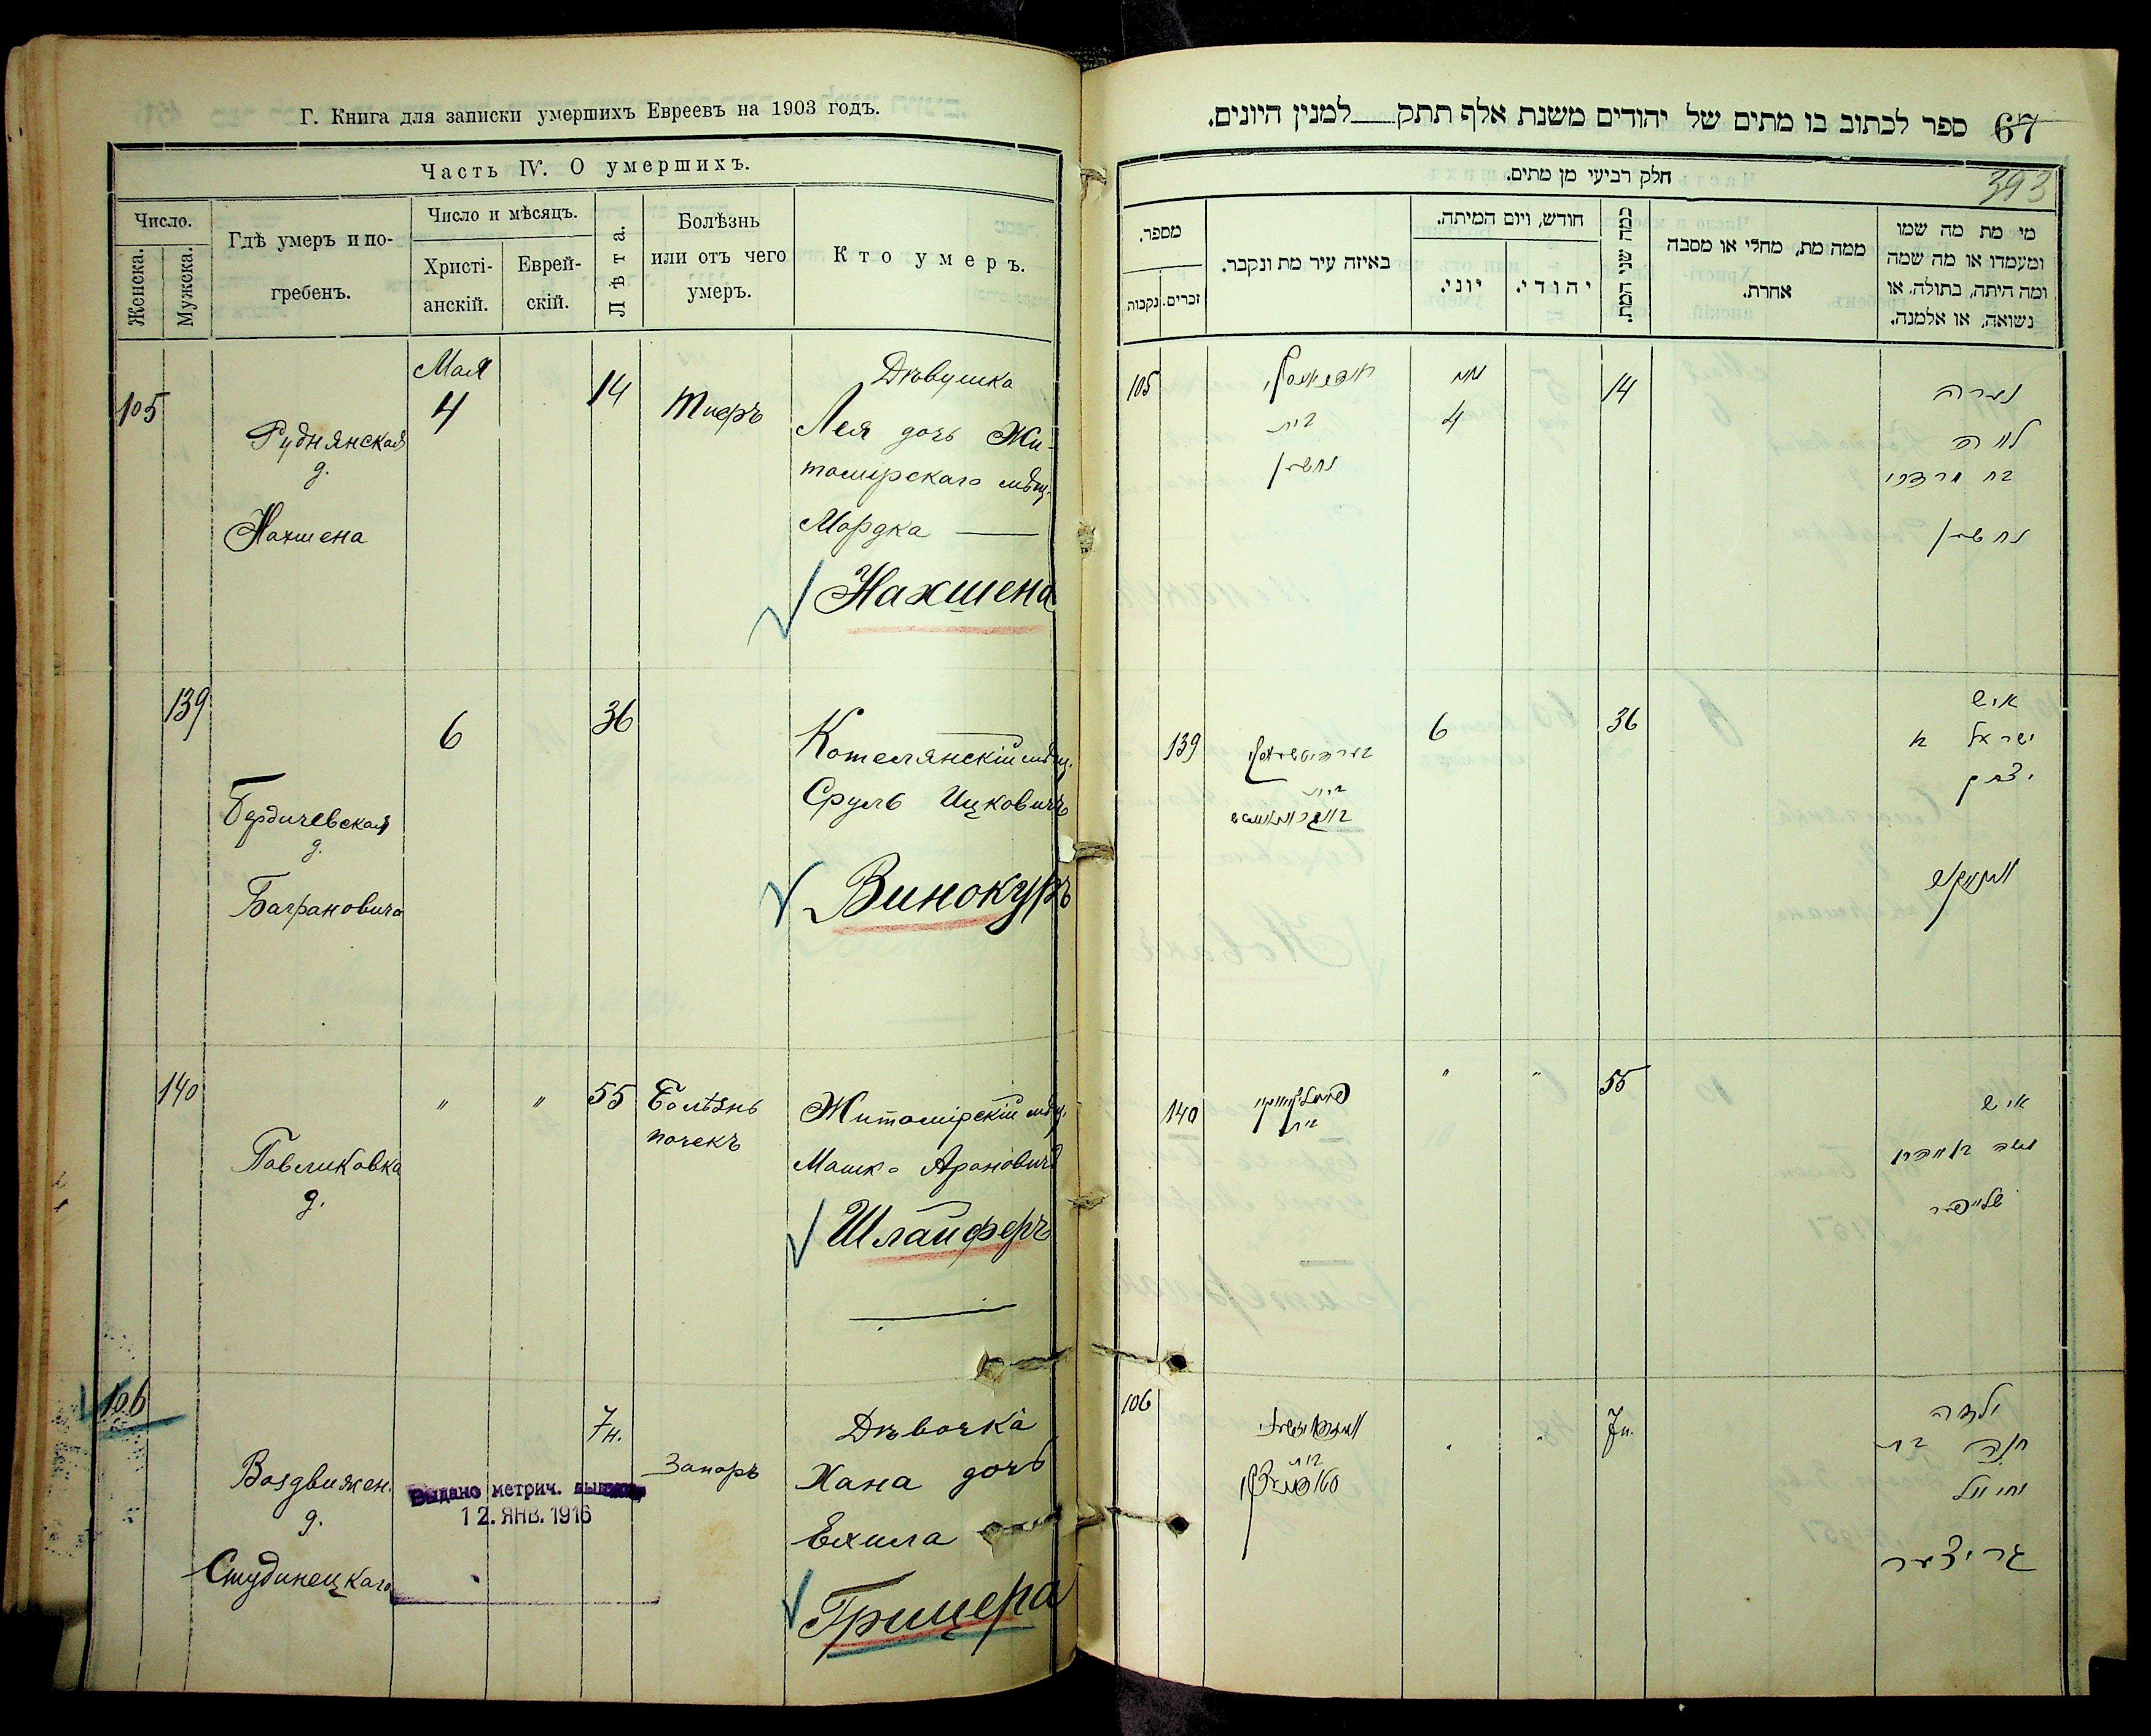 Г. Книга для записки умершихъ Евреевъ на 1903 годъ.
Часть IV. О умершихъ.
Число.
Женска.
Мужска.
Гдѣ умеръ и по-
гребенъ.
Число и мѣсяцъ.
Христі-
анскій.
Еврей-
скій.
Лѣта.
Болѣзнь
или отъ чего
умеръ.
Кто умеръ.
105
Руднянская
д.
Нахшена
Мая
4
14
Тифъ
Дѣвушка
Лея дочь Жи-
томирскаго мѣщ.
Мордка
Нахшена
139
Бердичевская
д.
6
36
Котелянскій мѣщ.
Сруль Ицковичъ
Винокуръ
140
Павликовка
д.
"
"
55
Болѣзнь
почекъ
Житомірскій мѣщ.
Мошко Ароновичъ
Шлайферъ
106
Воздвижен.
д.
Студинецкаго
7 н.
Запоръ
Дѣвочка
Хана дочь
Ехила
Грицера
Выдано метрич.
12. ЯНВ. 1916
67
ספר לכתוב בו מתים של יהודים משנת אלף תתק למנין היונים.
393
חלק רביעי מן מתים.
מספר.
נקבות
זכרים.
באיזה עיר מת ונקבר.
חודש, ויום המיתה.
יוני.
יהודי.
כמה שני המת.
ממה מת, מחלי או מסבה
אחרת.
מי מת מה שמו
ומעמדו או מה שמה
ומה היתה, בתולה, או
נשואה, או אלמנה.
105
בית
נחשון
מאי
4
14
נערה
לאה
בת מרדכי
נחשון
139
בית
6
36
איש
ישראל ב
יצחק
140
בית
"
"
55
איש
משה
שלייפער
106
בית
"
"
7 н.
ילדה
חנה בת
יחיאל
גריצער